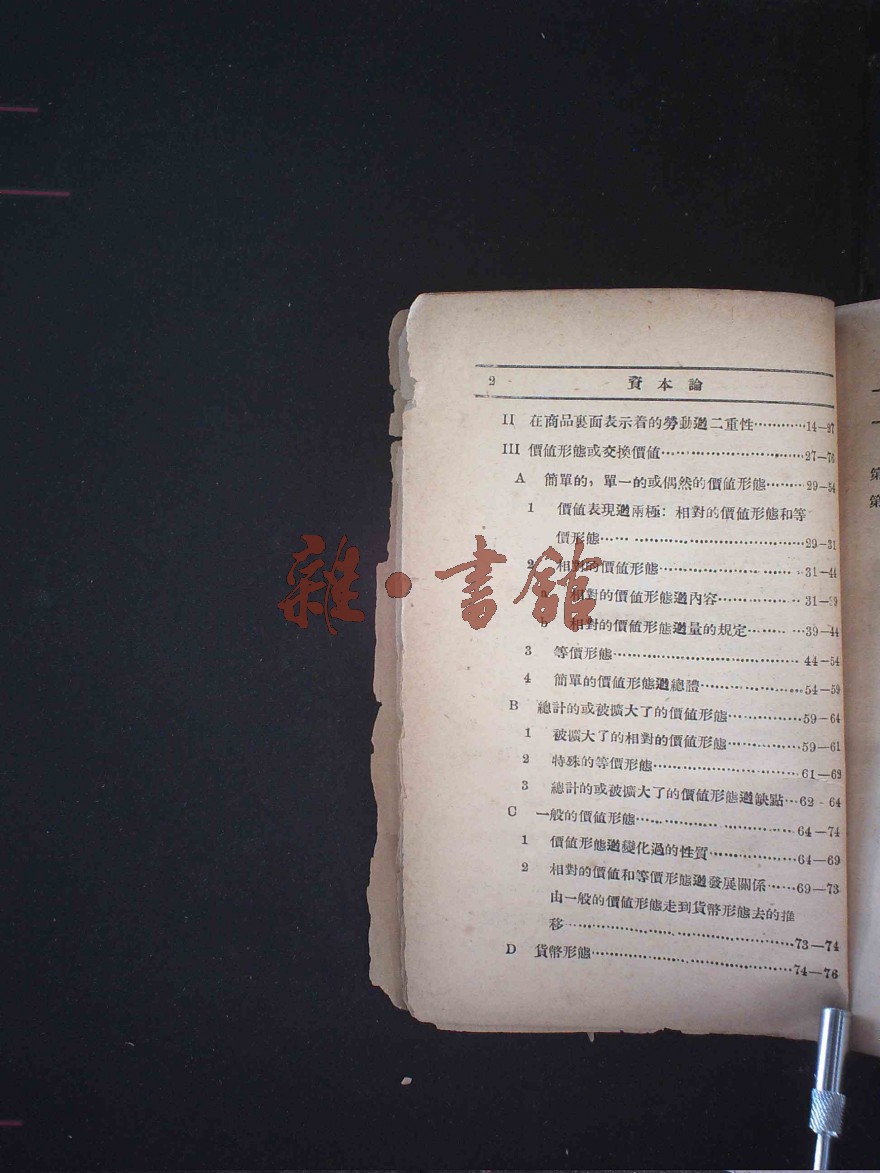 2
資本論
II 在商品裏面表示着的勞動逎二重性…………14—27
III 價值形態或交換價值…………………………27—76
A 簡單的，單一的或偶然的價值形態………29—54
1 價值表現逎兩極：相對的價值形態和等
價形態……………………………29—31
2 相對的價值形態…………………………31—44
a 相對的價值形態逎內容………………31—39
b 相對的價值形態逎量的規定…………39—44
3 等價形態…………………………………44—54
4 簡單的價值形態逎總體…………………54—59
B 總計的或被擴大了的價值形態……………59—64
1 被擴大了的相對的價值形態……………59—61
2 特殊的等價形態…………………………61—62
3 總計的或被擴大了的價值形態逎缺點…62-64
C 一般的價值形態……………………………64—74
1 價值形態逎變化過的性質………………64—69
2 相對的價值和等價形態逎發展關係……69—73
由一般的價值形態走到貨幣形態去的推
移…………………………………………73—74
D 貨幣形態……………………………………74—76
雜·書館
第
第